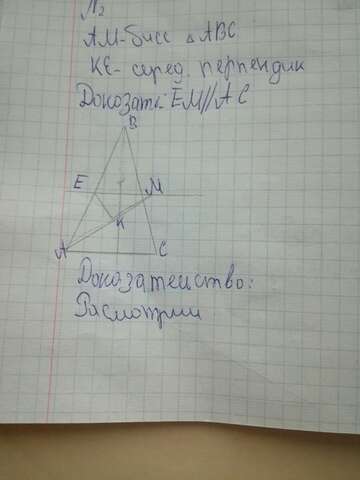 N2
AM-бисс △ ABC
KE- серед. перпендик
Докозать: EM//AC
B
E
M
K
A
C
Докозатеиство:
Расмотрим